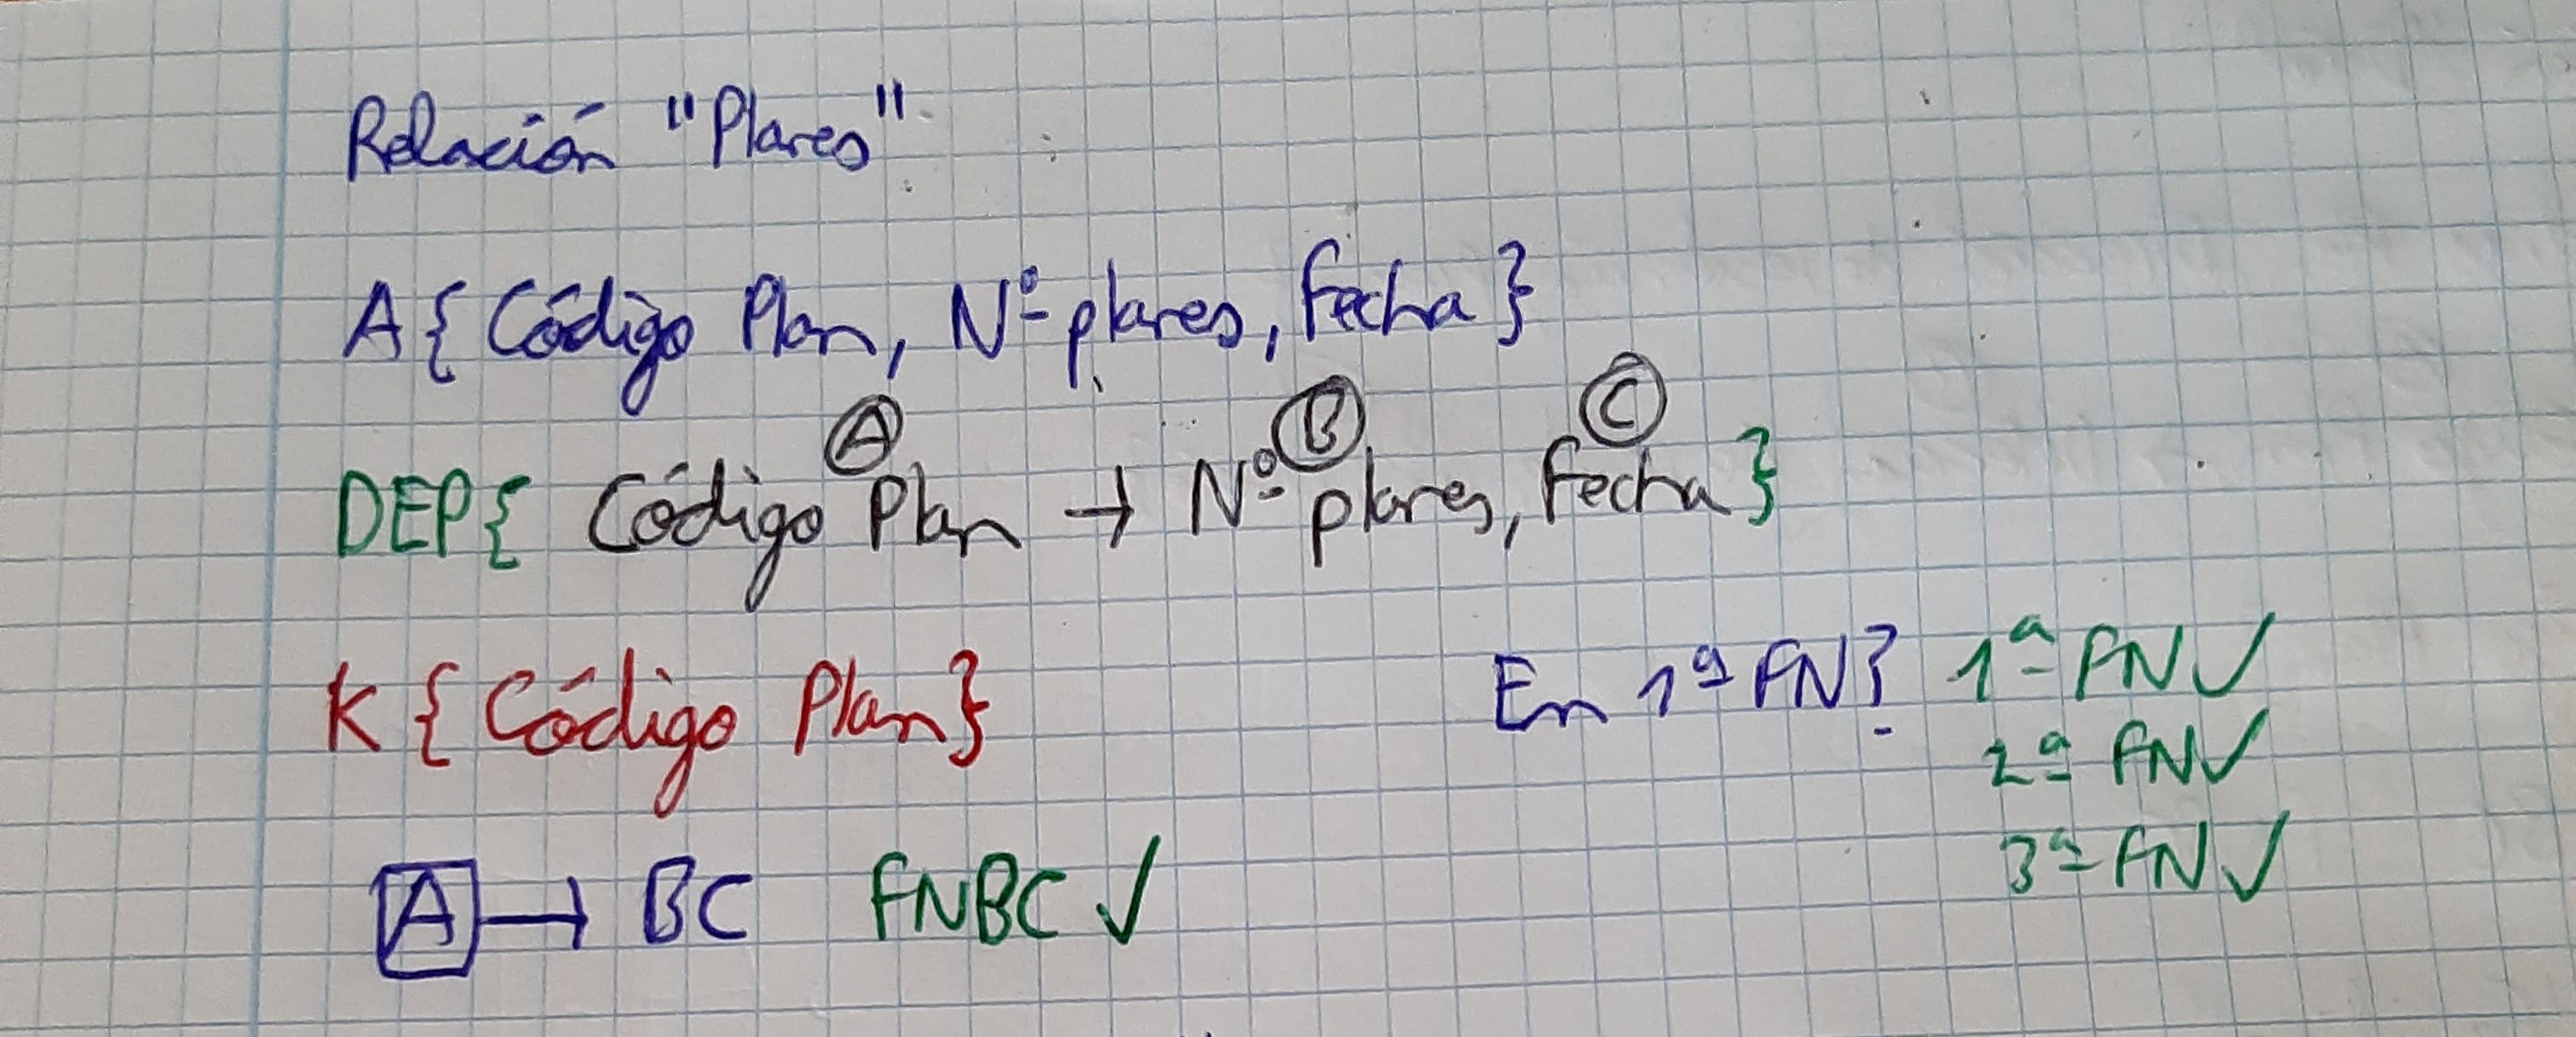 Relación "Planes"
A{ Código Plan, Nº planes, Fecha }
A B C
DEP{ Código Plan → Nº planes, Fecha }
K { Código Plan} En 1ª FN? 1ª FN ✓
2ª FN ✓
3ª FN ✓
A → BC FNBC ✓